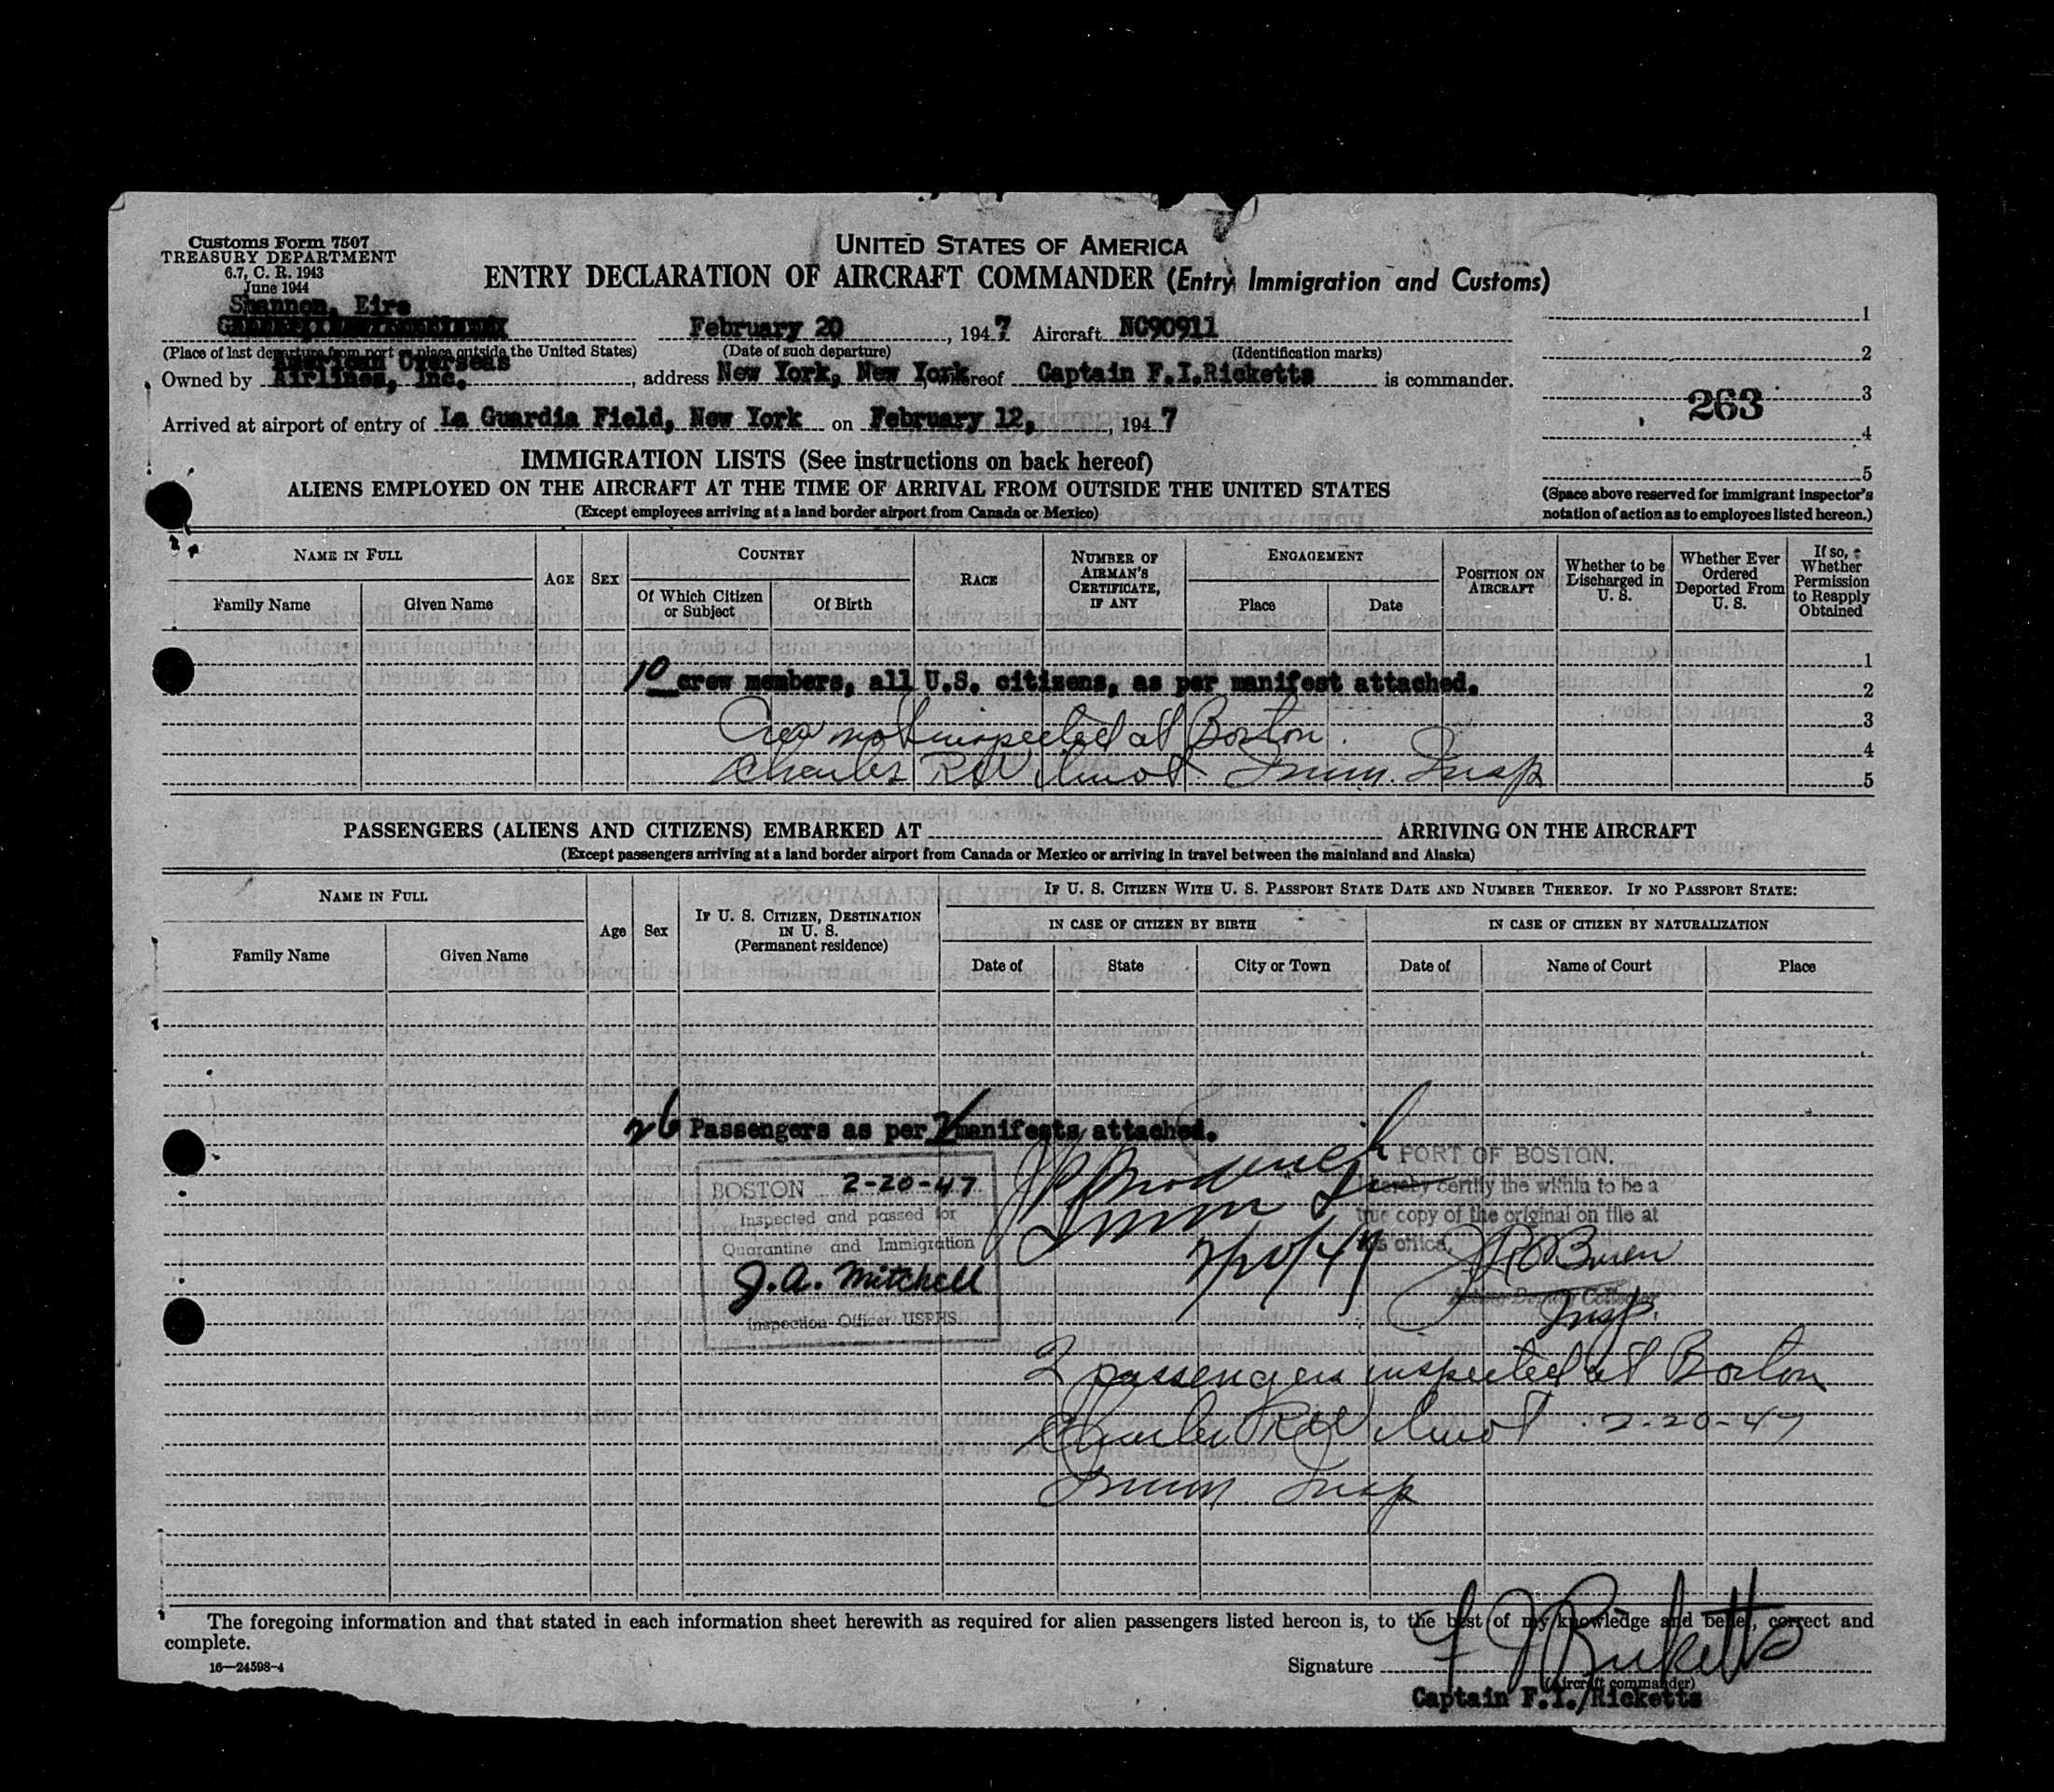 Customs Form 7507
TREASURY DEPARTMENT
6.7, C. R. 1943
June 1944
UNITED STATES OF AMERICA
ENTRY DECLARATION OF AIRCRAFT COMMANDER (Entry Immigration and Customs)
Shannon, Eire
February 20, 1947 Aircraft NC90911
(Place of last departure from port or place outside the United States) (Date of such departure) (Identification marks)
American Overseas
Owned by Airlines, Inc., address New York, New York whereof Captain F.I.Ricketts is commander.
Arrived at airport of entry of La Guardia Field, New York on February 12, 1947
1
2
3
263
4
5
(Space above reserved for immigrant inspector's
notation of action as to employees listed hereon.)
IMMIGRATION LISTS (See instructions on back hereof)
ALIENS EMPLOYED ON THE AIRCRAFT AT THE TIME OF ARRIVAL FROM OUTSIDE THE UNITED STATES
(Except employees arriving at a land border airport from Canada or Mexico)
NAME IN FULL
Family Name Given Name
AGE
SEX
COUNTRY
Of Which Citizen or Subject
Of Birth
RACE
NUMBER OF AIRMAN'S CERTIFICATE, IF ANY
ENGAGEMENT
Place Date
POSITION ON AIRCRAFT
Whether to be Discharged in U. S.
Whether Ever Ordered Deported From U. S.
If so, Whether Permission to Reapply Obtained
1
10 crew members, all U.S. citizens, as per manifest attached.
2
3
Crew not inspected at Boston.
4
Charles R Wilmot Imm. Insp
5
PASSENGERS (ALIENS AND CITIZENS) EMBARKED AT ARRIVING ON THE AIRCRAFT
(Except passengers arriving at a land border airport from Canada or Mexico or arriving in travel between the mainland and Alaska)
NAME IN FULL
Family Name Given Name
Age
Sex
IF U. S. CITIZEN, DESTINATION IN U. S.
(Permanent residence)
IF U. S. CITIZEN WITH U. S. PASSPORT STATE DATE AND NUMBER THEREOF. IF NO PASSPORT STATE:
IN CASE OF CITIZEN BY BIRTH IN CASE OF CITIZEN BY NATURALIZATION
Date of State City or Town Date of Name of Court Place
26 Passengers as per 2 manifests attached.
BOSTON 2-20-47
Inspected and passed for
Quarantine and Immigration
J.A. Mitchell
Inspection Officer USPHS
Imm
2/20/47
PORT OF BOSTON.
I hereby certify the within to be a
true copy of the original on file at
this office.
J R O'Brien
Acting Deputy Collector
Insp.
2 passengers inspected at Boston
Charles R Wilmot 2-20-47
Imm Insp
The foregoing information and that stated in each information sheet herewith as required for alien passengers listed hereon is, to the best of my knowledge and belief, correct and
complete.
16—24598-4
Signature F I Ricketts
(Aircraft commander)
Captain F.I. Ricketts